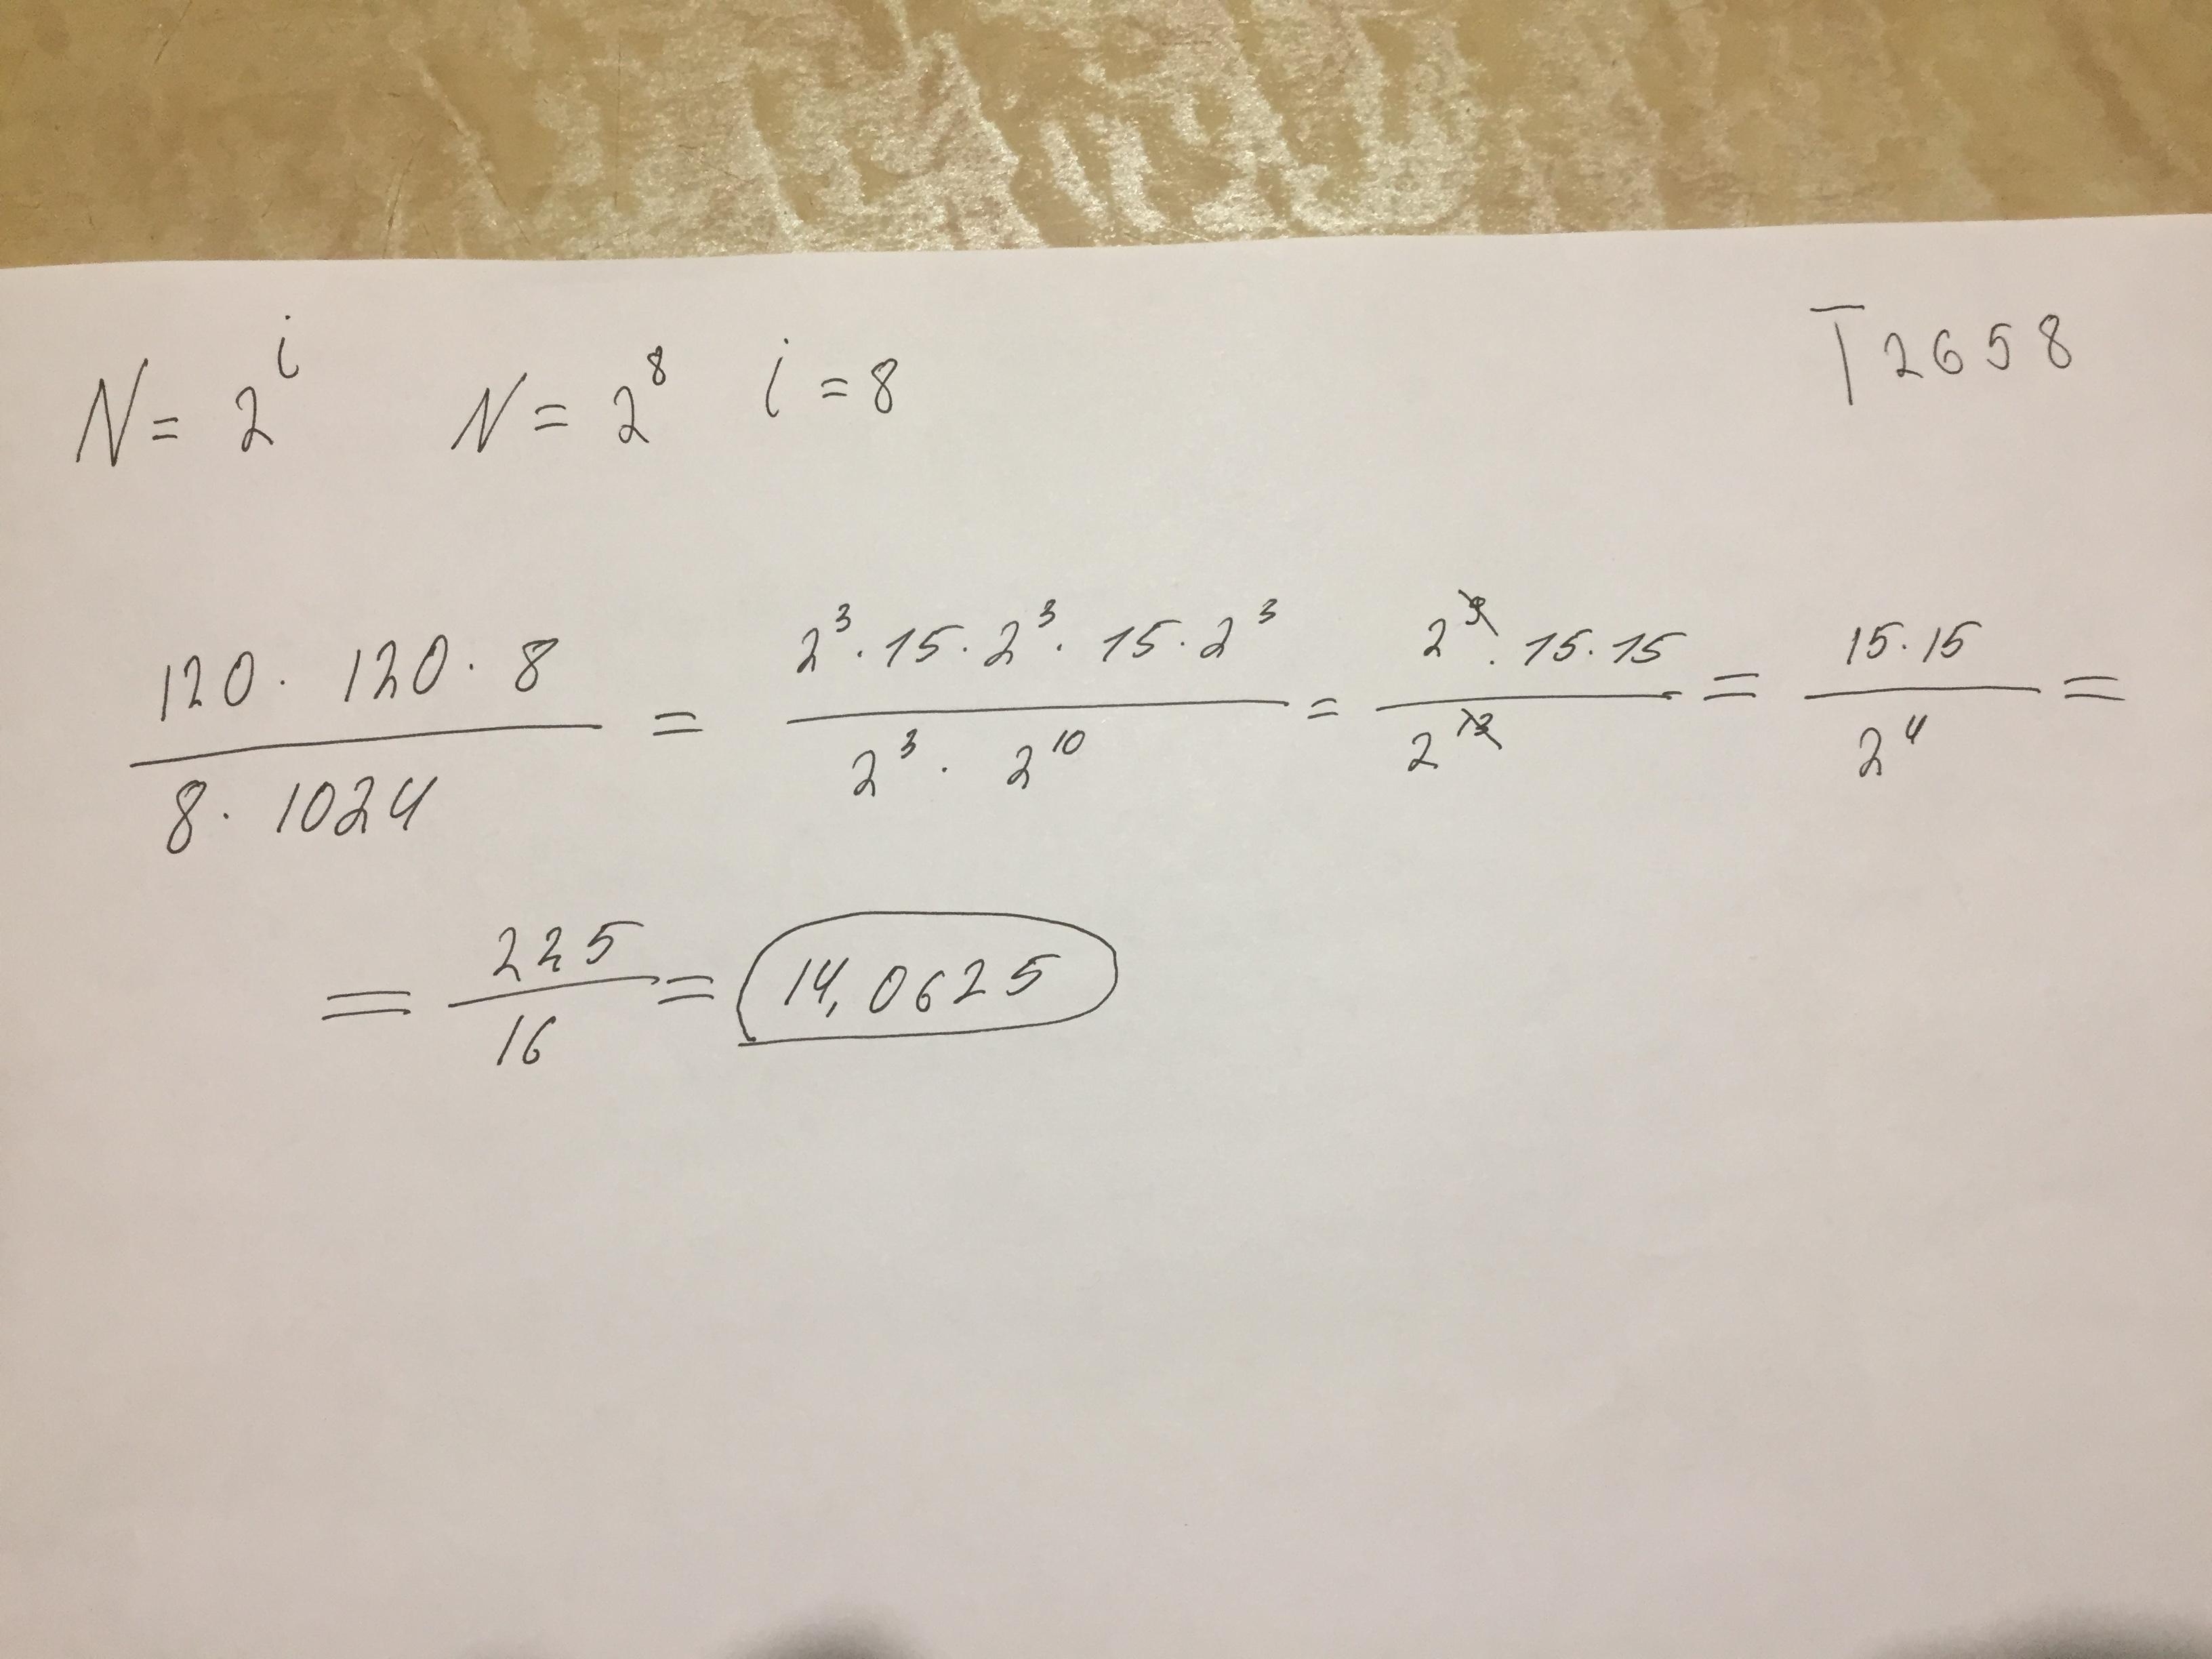 T2658
N = 2^i   N = 2^8   i = 8
(120 · 120 · 8) / (8 · 1024) = (2^3 · 15 · 2^3 · 15 · 2^3) / (2^3 · 2^10) = (2^9 · 15 · 15) / (2^13) = (15 · 15) / (2^4) =
= 225 / 16 = 14,0625